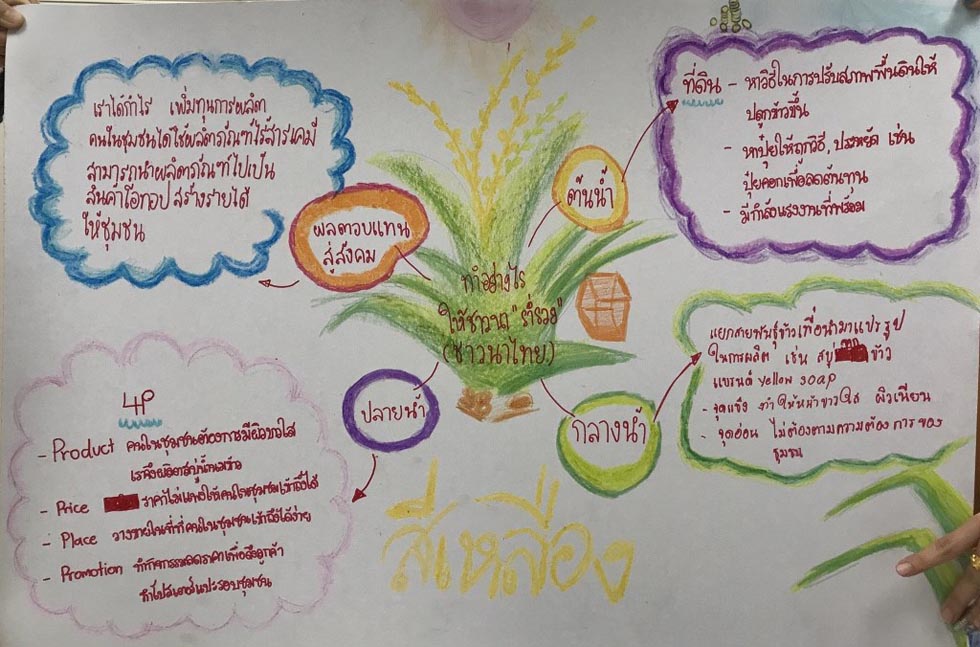 เราได้กำไร เพิ่มทุนการผลิต
คนในชุมชนได้ใช้ผลิตภัณฑ์ไร้สารเคมี
สามารถนำผลิตภัณฑ์ไปเป็น
สินค้าโอทอป สร้างรายได้
ให้ชุมชน
ผลตอบแทน
สู่สังคม
ต้นน้ำ
ที่ดิน - หาวิธีในการปรับสภาพพื้นดินให้
ปลูกข้าวขึ้น
- หาปุ๋ยให้ถูกวิธี, ประหยัด เช่น
ปุ๋ยคอกเพื่อลดต้นทุน
- มีกำลังแรงงานที่พร้อม
ทำอย่างไร
ให้ชาวนา "ร่ำรวย"
(ชาวนาไทย)
ปลายน้ำ
กลางน้ำ
แยกสายพันธุ์ข้าวเพื่อนำมาแปรรูป
ในการผลิต เช่น สบู่ ข้าว
แบรนด์ Yellow soap
- จุดแข็ง ทำให้หน้าขาวใส ผิวเนียน
- จุดอ่อน ไม่ต้องตามความต้องการของ
ชุมชน
4P
- Product คนในชุมชนต้องการมีผิวขาวใส
เราจึงผลิตสบู่น้ำนมข้าว
- Price ราคาไม่แพงให้คนในชุมชนเข้าถึงได้
- Place วางขายในที่ที่คนในชุมชนเข้าถึงได้ง่าย
- Promotion ทำกิจกรรมลดราคาเพื่อดึงลูกค้า
ทำโปสเตอร์แปะรอบชุมชน
สีเหลือง